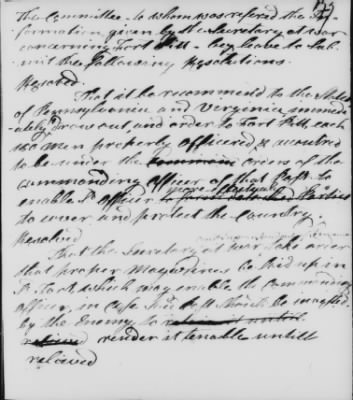 The Committee - to whom was refered the In-
formation given by the Secretary at war
concerning Fort Pitt - beg leave to sub-
mit the following Resolutions.
Resolved.
That it be recommend to the States
of Pennsylvania and Virginia immedi-
-ately draw out, and order to Fort Pitt, each
men properly officered & accoutred
to be under the command orders of the
commanding Officer of that Post. to
more effectually
enable sd. officer to form detached Parties
to cover and protect the Country.
Resolved
That the Secretary at war take order
that proper Magazines be laid up in
sd. Fort, which may enable the Commanding
Officer, in Case said Post should be invested
by the Enemy, to retain it until
relieved render it tenable untill
relieved